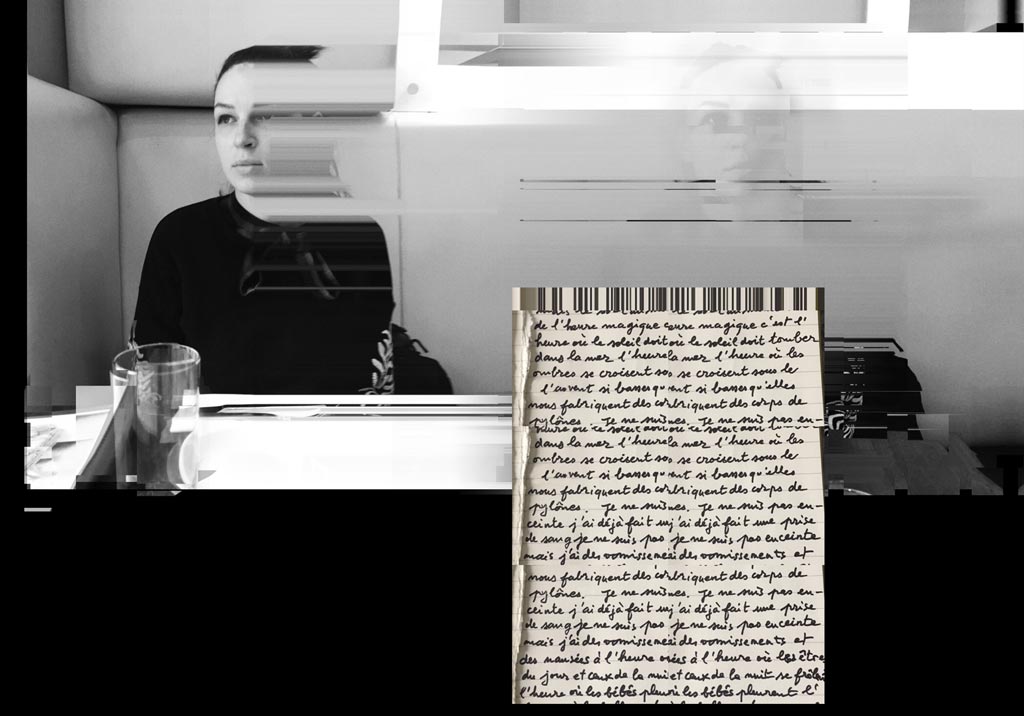 de l'heure magique eure magique c'est l'
heure où le soleil doit où le soleil doit tomber
dans la mer l'heurela mer l'heure où les
ombres se croisent sos se croisent sous le
l'auvent si basses qu'ent si basses qu'elles
nous fabriquent des corbriquent des corps de
pylônes. Je ne suisnes. Je ne suis pas en-
dans la mer l'heurela mer l'heure où les
ombres se croisent sos se croisent sous le
l'auvent si basses qu'ent si basses qu'elles
nous fabriquent des corbriquent des corps de
pylônes. Je ne suisnes. Je ne suis pas en-
ceinte j'ai déjà fait uj'ai déjà fait une prise
de sang je ne suis pas je ne suis pas enceinte
mais j'ai des vomissemesi des vomissements et
nous fabriquent des corbriquent des corps de
pylônes. Je ne suisnes. Je ne suis pas en-
ceinte j'ai déjà fait uj'ai déjà fait une prise
de sang je ne suis pas je ne suis pas enceinte
mais j'ai des vomissemesi des vomissements et
des nausées à l'heure osées à l'heure où les être
du jour et ceux de la nuiet ceux de la nuit se frôle
l'heure où les bébés pleuroù les bébés pleurent l'